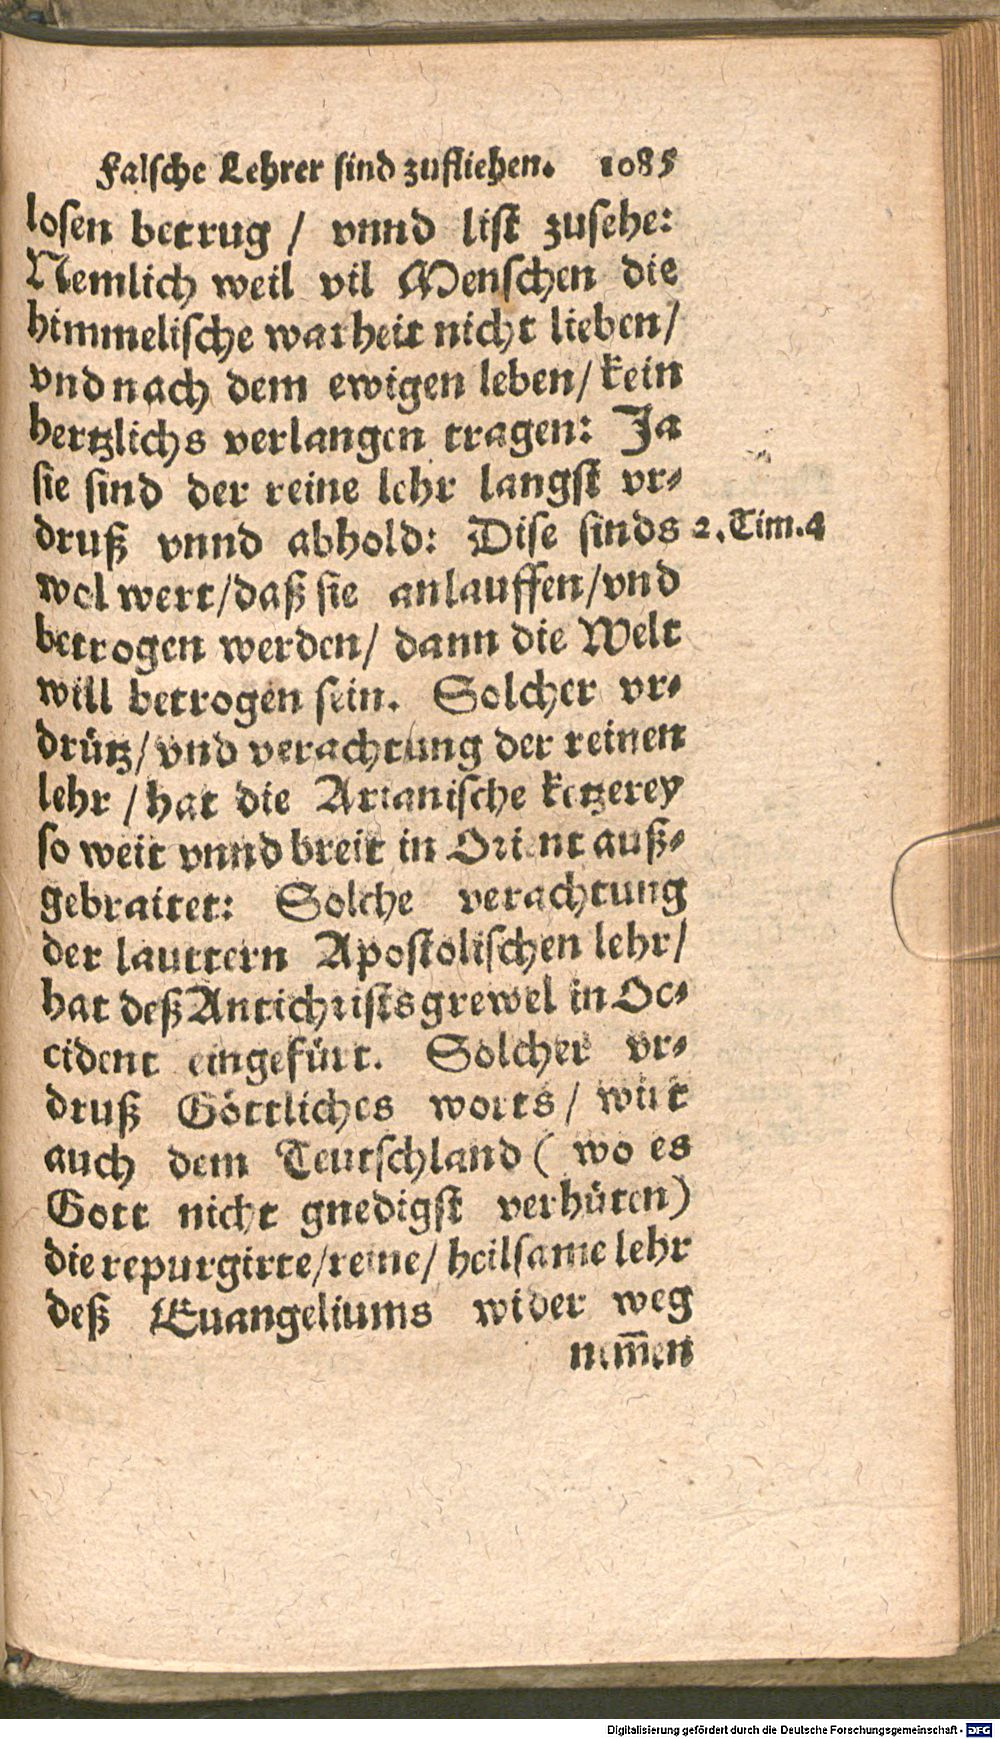 Falsche Lehrer sind zufliehen. 1085
losen betrug / vnnd list zusehe:
Nemlich weil vil Menschen die
himmelische warheit nicht lieben/
vnd nach dem ewigen leben/ kein
hertzlichs verlangen tragen: Ja
sie sind der reine lehr langst vr-
druß vnnd abhold: Dise sinds 2. Tim. 4
wol wert/daß sie anlauffen/vnd
betrogen werden/ dann die Welt
will betrogen sein. Solcher vr-
drütz/ vnd verachtung der reinen
lehr / hat die Arianische ketzerey
so weit vnnd breit in Orient auß-
gebraitet: Solche verachtung
der lauttern Apostolischen lehr/
hat deß Antichrists grewel in Oc-
cident eingefürt. Solcher vr-
druß Göttliches worts / wirt
auch dem Teutschland ( wo es
Gott nicht gnedigst verhüten)
die repurgirte/reine/ heilsame lehr
deß Euangeliums wider weg
nem̅en
Digitalisierung gefördert durch die Deutsche Forschungsgemeinschaft - DFG